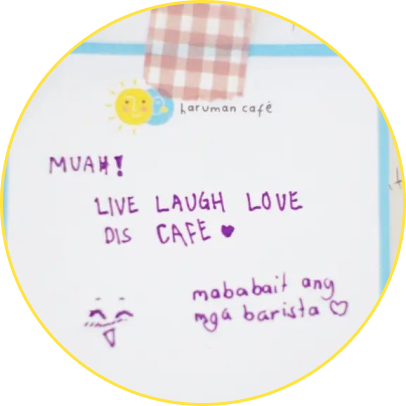 haruman café
MUAH!
LIVE LAUGH LOVE
DIS CAFE ♥
mababait ang
mga barista ♡